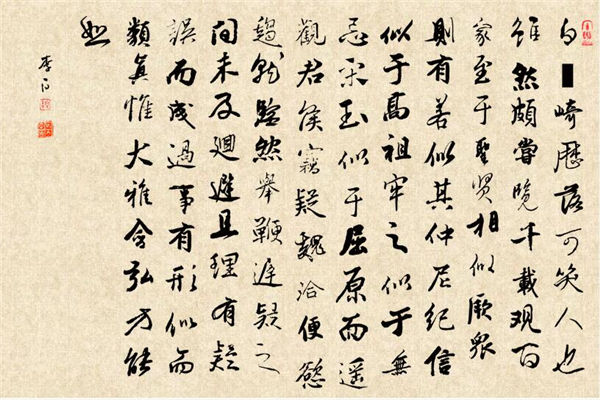 白崎歷落可笑人也
雖然頗嘗覽千載观百
家至于聖贤相似厥眾
則有若似其仲尼紀信
似于高祖牢之似于無
忌宋玉似于屈原而遥
觀君侯竊疑魏洽便慾
趨就臨然舉鞭遲疑之
间未及迴避且理有疑
誤而成過事有形似而
類真惟大雅含弘方能
恕
李白